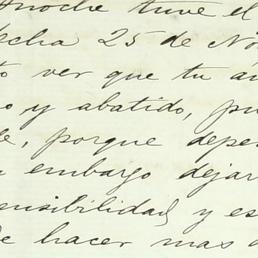 Anoche tuve el
fecha 25 de No
to ver que tu
o y abatido, pu
le, porque depe
n embargo dejar
ensibilidad, y es
de hacer mas